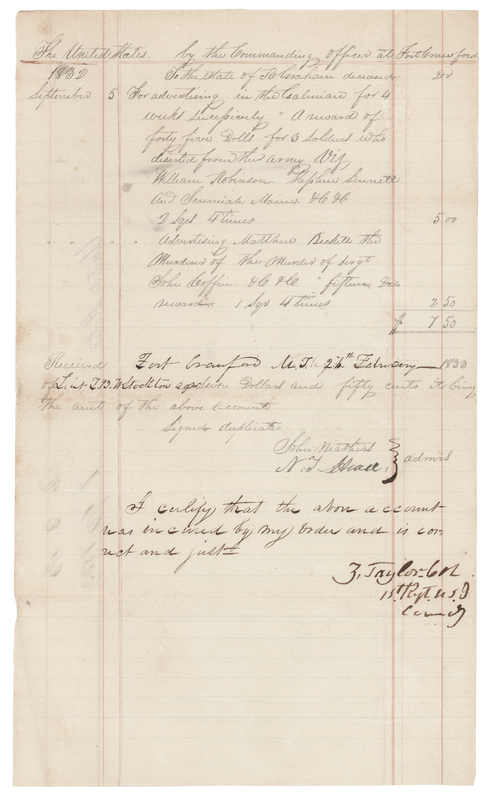 The United States by the Commanding Officer at Fort Crawford
1832 To the Estate of Graham deceased
September 5 For advertising in the Galenian for 4
weeks sucessively " A reward of
forty five Dolls for 3 Soldiers who
deserted from the army Viz
William Robinson. Stephen
and Jeremiah &C &C
2 Sqrs 4 times 5 00
" " " Advertising Matthew the
Murderer of the Murder of Sergt
John Coffin &C &C " fifteen Dolls
reward 1 Sqr 4 times 2 50
$ 7 50
Received Fort Crawford M.T. 26th February 1833
of Lieut T.B.W. Stockton seven Dollars and fifty cents it being
the amt of the above account
Signed duplicates
John
N. T. admrs
I certify that the above account
was incured by my order and is cor
rect and just
Z. Taylor Col
1st Regt U.S. I
Comdg